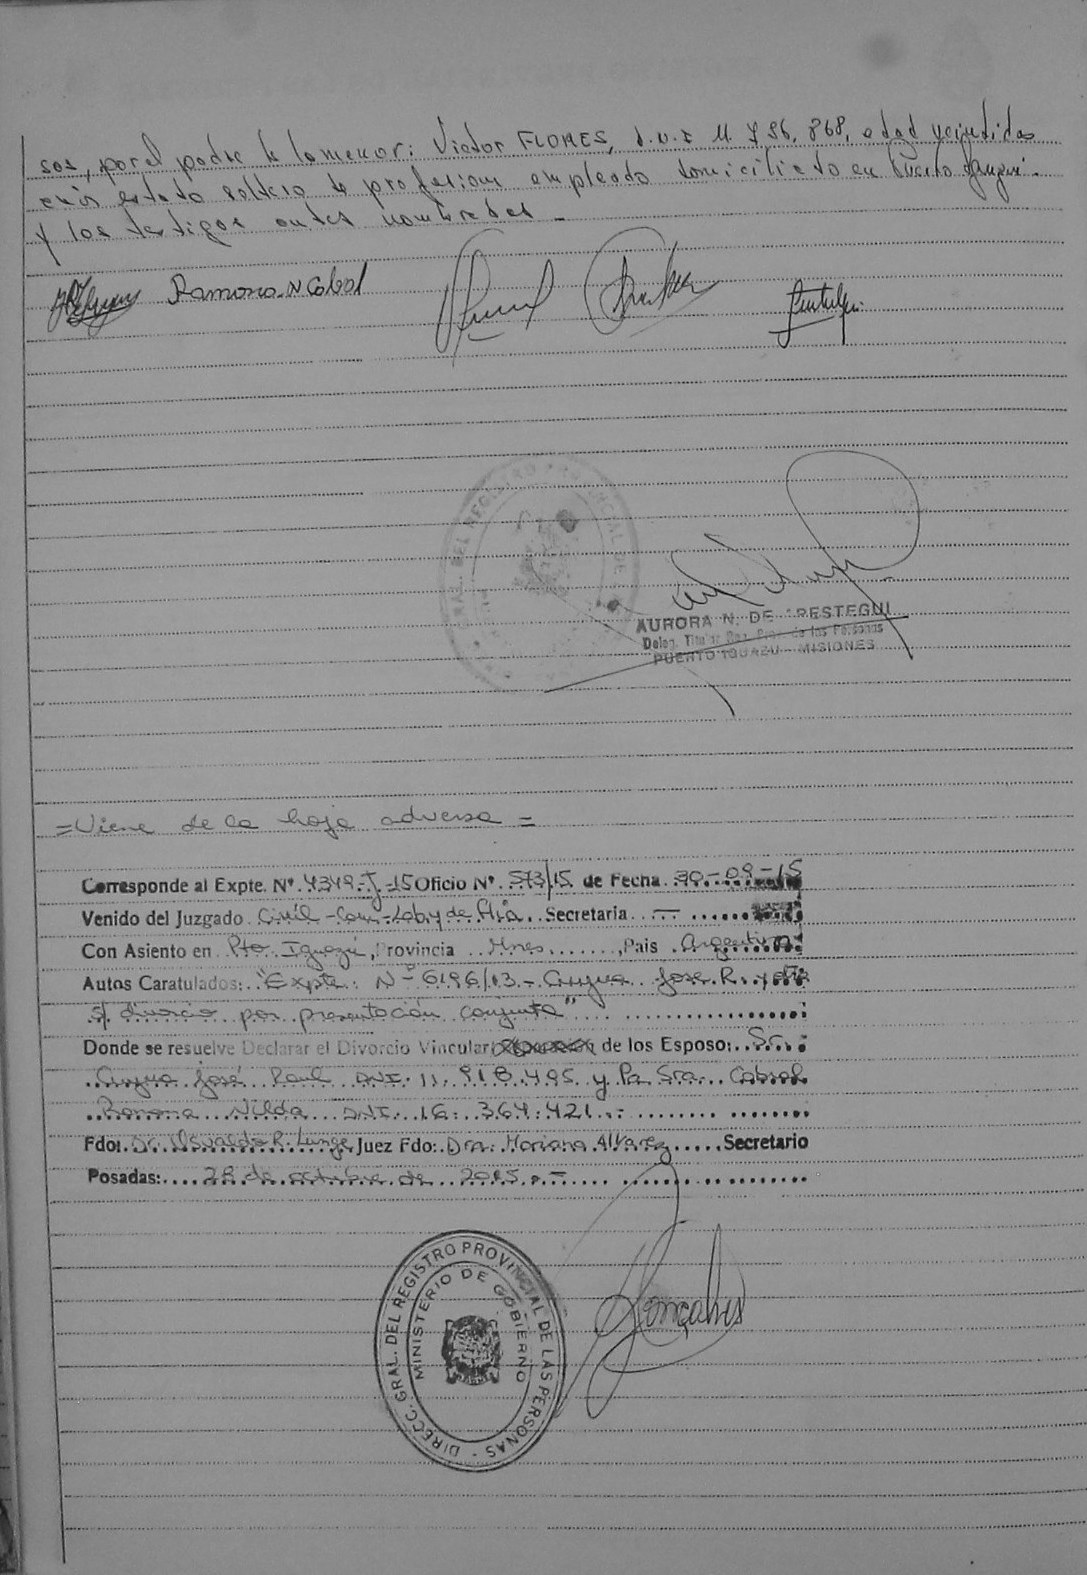 sos, por el padre de la menor: Victor FLORES, D.N.I M. 7.96.868, edad veintidos
años estado soltero de profesion empleado domiciliado en Puerto Iguazú.-
y los testigos antes nombrados.-
Ramona N Cabral
GRAL. DEL REGISTRO PROVINCIAL DE
AURORA N. DE ARESTEGUI
Deleg. Titular Reg. Prov. de las Personas
PUERTO IGUAZU - MISIONES
=Viene de la hoja adversa=
Corresponde al Expte. Nº 4349-J-15 Oficio Nº 573/15 de Fecha 30-09-15
Venido del Juzgado Civil-Com-Lab y de Flia. Secretaria .-
Con Asiento en Pto Iguazú, Provincia Mnes, Pais Argentina
Autos Caratulados: "Expte. Nº 6196/13.- José R. y otra
s/ divorcio por presentación conjunta"
Donde se resuelve Declarar el Divorcio Vincular de los Esposo: Sr.
José Raul DNI. 11.918.495 y la Sra. Cabral
Ramona Nilda DNI. 16.364.421.-
Fdo: Dr. Osvaldo R. Lunge Juez Fdo: Dra. Mariana Alvarez Secretario
Posadas: 28 de octubre de 2015.-
DIRECC. GRAL. DEL REGISTRO PROVINCIAL DE LAS PERSONAS
MINISTERIO DE GOBIERNO
Gonçalves